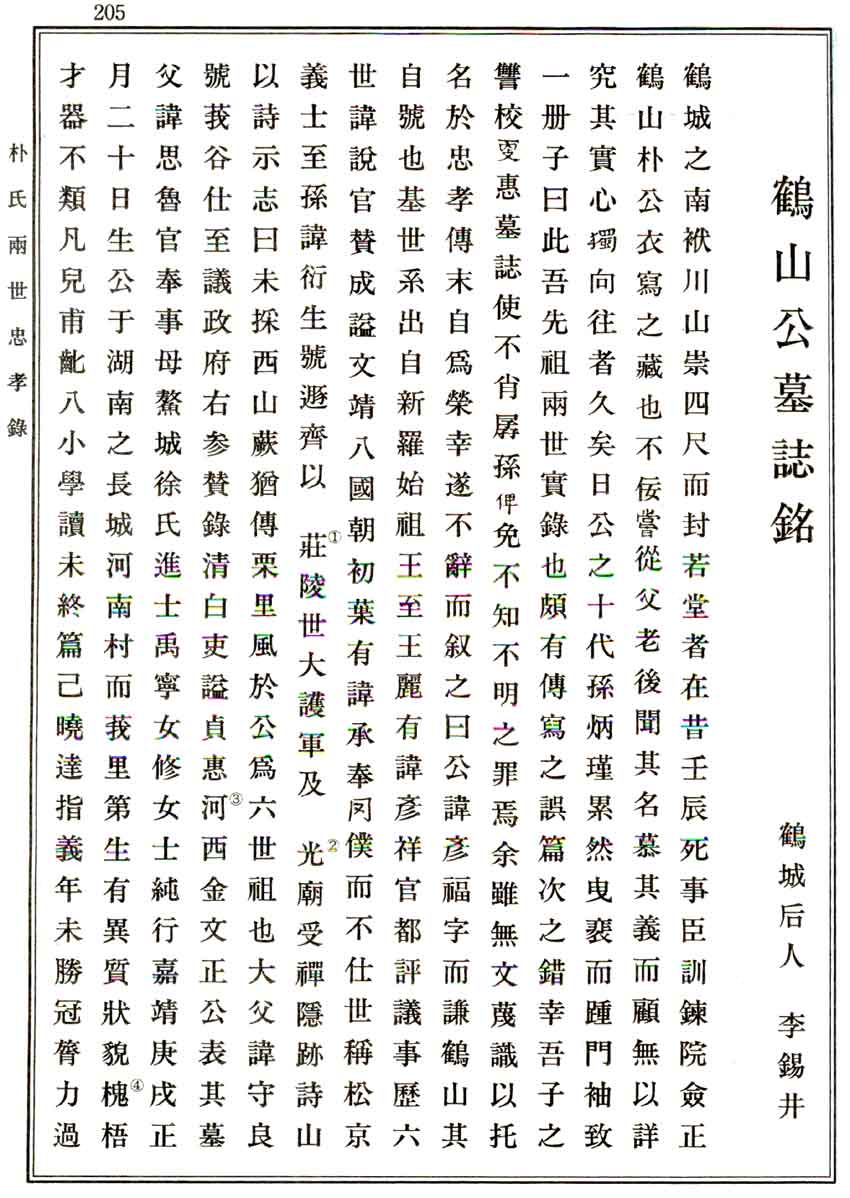 205
鶴山公墓誌銘
鶴城后人 李錫井
鶴城之南袱川山崇四尺而封若堂者在昔壬辰死事臣訓鍊院僉正
鶴山朴公衣寫之藏也不佞嘗從父老後聞其名慕其義而顧無以詳
究其實心獨向往者久矣日公之十代孫炳瑾累然曳裵而踵門袖致
一册子曰此吾先祖兩世實錄也頗有傳寫之誤篇次之錯幸吾子之
讐校更惠墓誌使不肖孱孫俾免不知不明之罪焉余雖無文蔑識以托
名於忠孝傳末自爲榮幸遂不辭而叙之曰公諱彦福字而謙鶴山其
自號也基世系出自新羅始祖王至王麗有諱彦祥官都評議事歷六
世諱說官贊成謚文靖八國朝初葉有諱承奉罔僕而不仕世稱松京
義士至孫諱衍生號遯齊以 莊陵世大護軍及 光廟受禪隱跡詩山
①
②
以詩示志曰未採西山蕨猶傳栗里風於公爲六世祖也大父諱守良
號莪谷仕至議政府右參贊錄清白吏謚貞惠河西金文正公表其墓
③
父諱思魯官奉事母鰲城徐氏進士禹寧女修女士純行嘉靖庚戌正
月二十日生公于湖南之長城河南村而莪里第生有異質狀貌槐梧
④
才器不類凡兒甫齔八小學讀未終篇己曉達指義年未勝冠膂力過
朴氏兩世忠孝錄